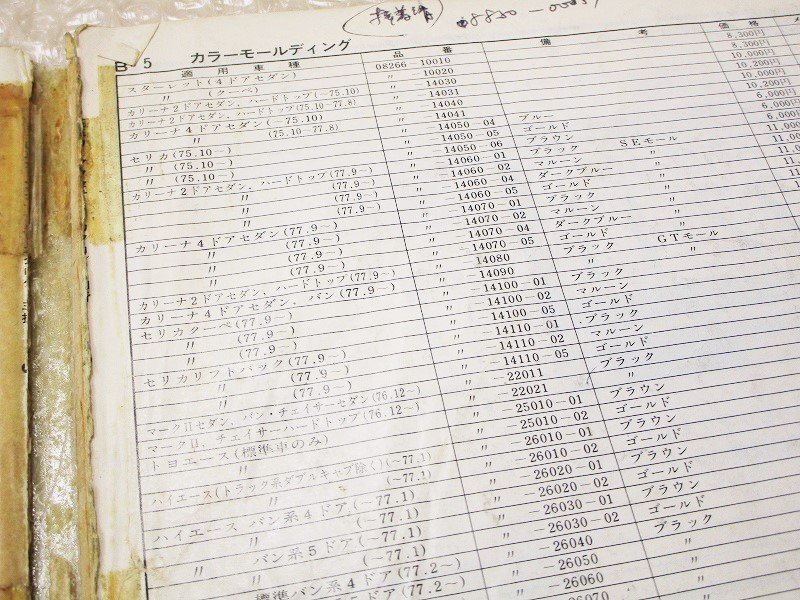 接着剤 08850-00051
B-5 カラーモールディング
適用車種 品番 備考 価格
スターレット(4ドアセダン) 08266-10010 8,300円
〃 (クーペ) 〃 -10020 8,300円
カリーナ2ドアセダン、ハードトップ(~75.10) 〃 -14030 10,000円
カリーナ2ドアセダン、ハードトップ(75.10~77.8) 〃 -14031 10,200円
カリーナ4ドアセダン(~75.10) 〃 -14040 10,000円
〃 (75.10~77.8) 〃 -14041 10,200円
セリカ(75.10~) 〃 -14050-04 ブルー 6,000円
〃 (75.10~) 〃 -14050-05 ゴールド 6,000円
〃 (75.10~) 〃 -14050-06 ブラウン 6,000円
カリーナ2ドアセダン、ハードトップ(77.9~) 〃 -14060-01 ブラック SEモール
〃 (77.9~) 〃 -14060-02 マルーン 〃
〃 (77.9~) 〃 -14060-04 ダークブルー 〃
〃 (77.9~) 〃 -14060-05 ゴールド 〃
カリーナ4ドアセダン(77.9~) 〃 -14070-01 ブラック 〃
〃 (77.9~) 〃 -14070-02 マルーン 〃
〃 (77.9~) 〃 -14070-04 ダークブルー 〃
〃 (77.9~) 〃 -14070-05 ゴールド 〃
カリーナ2ドアセダン、ハードトップ(77.9~) 〃 -14080 ブラック GTモール
カリーナ4ドアセダン、バン(77.9~) 〃 -14090 〃 〃
セリカクーペ(77.9~) 〃 -14100-01 ブラック
〃 (77.9~) 〃 -14100-02 マルーン
〃 (77.9~) 〃 -14100-05 ゴールド
セリカリフトバック(77.9~) 〃 -14110-01 ブラック
〃 (77.9~) 〃 -14110-02 マルーン
〃 (77.9~) 〃 -14110-05 ゴールド
マークⅡセダン、バン・チェイサーセダン(76.12~) 〃 -22011 ブラック
マークⅡ、チェイサーハードトップ(76.12~) 〃 -22021 〃
トヨエース(標準車のみ) 〃 -25010-01 ブラウン
〃 〃 -25010-02 ゴールド
ハイエース(トラック系ダブルキャブ除く)(~77.1) 〃 -26010-01 ブラウン
〃 (~77.1) 〃 -26010-02 ゴールド
ハイエース バン系4ドア(~77.1) 〃 -26020-01 ブラウン
〃 (~77.1) 〃 -26020-02 ゴールド
バン系5ドア(~77.1) 〃 -26030-01 ブラウン
〃 (~77.1) 〃 -26030-02 ゴールド
標準バン系4ドア(77.2~) 〃 -26040 ブラック
5ドア(77.2~) 〃 -26050 〃
〃 -26060 〃
-26070